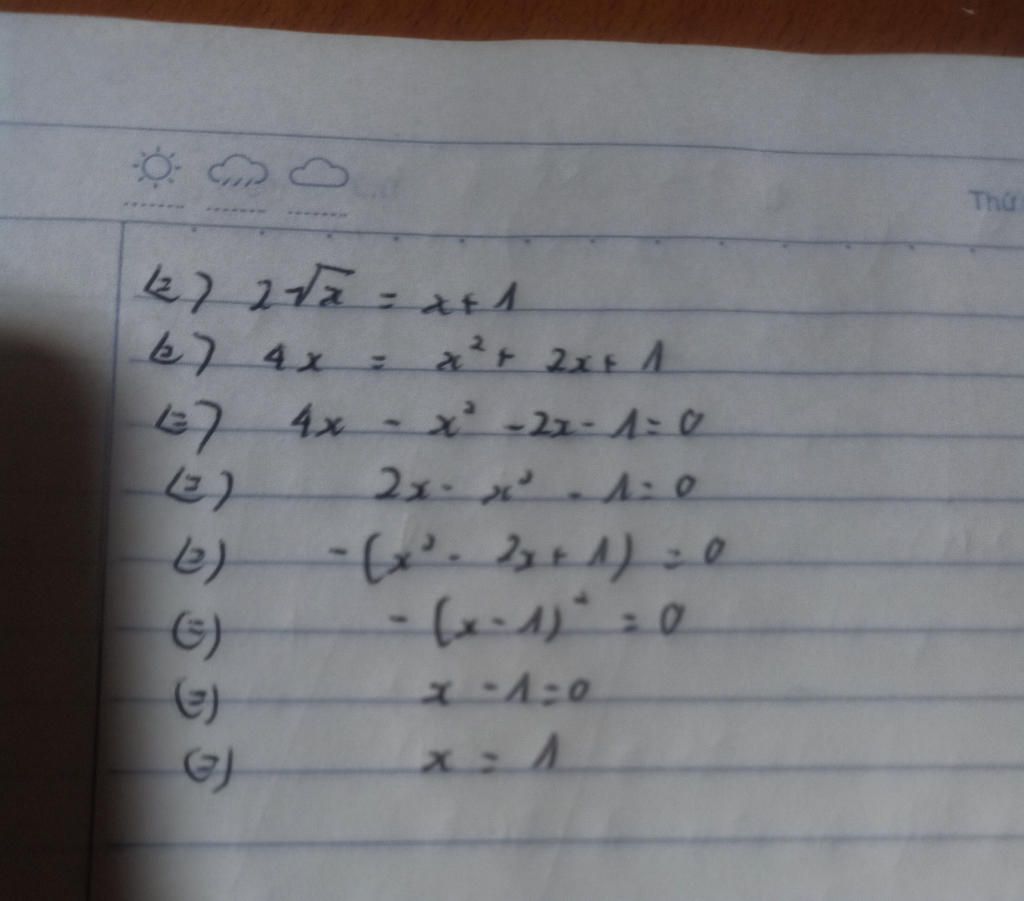 Thứ
<=> 2√x = x + 1
<=> 4x = x² + 2x + 1
<=> 4x - x² - 2x - 1 = 0
<=> 2x - x² - 1 = 0
<=> -(x² - 2x + 1) = 0
<=> -(x - 1)² = 0
<=> x - 1 = 0
<=> x = 1